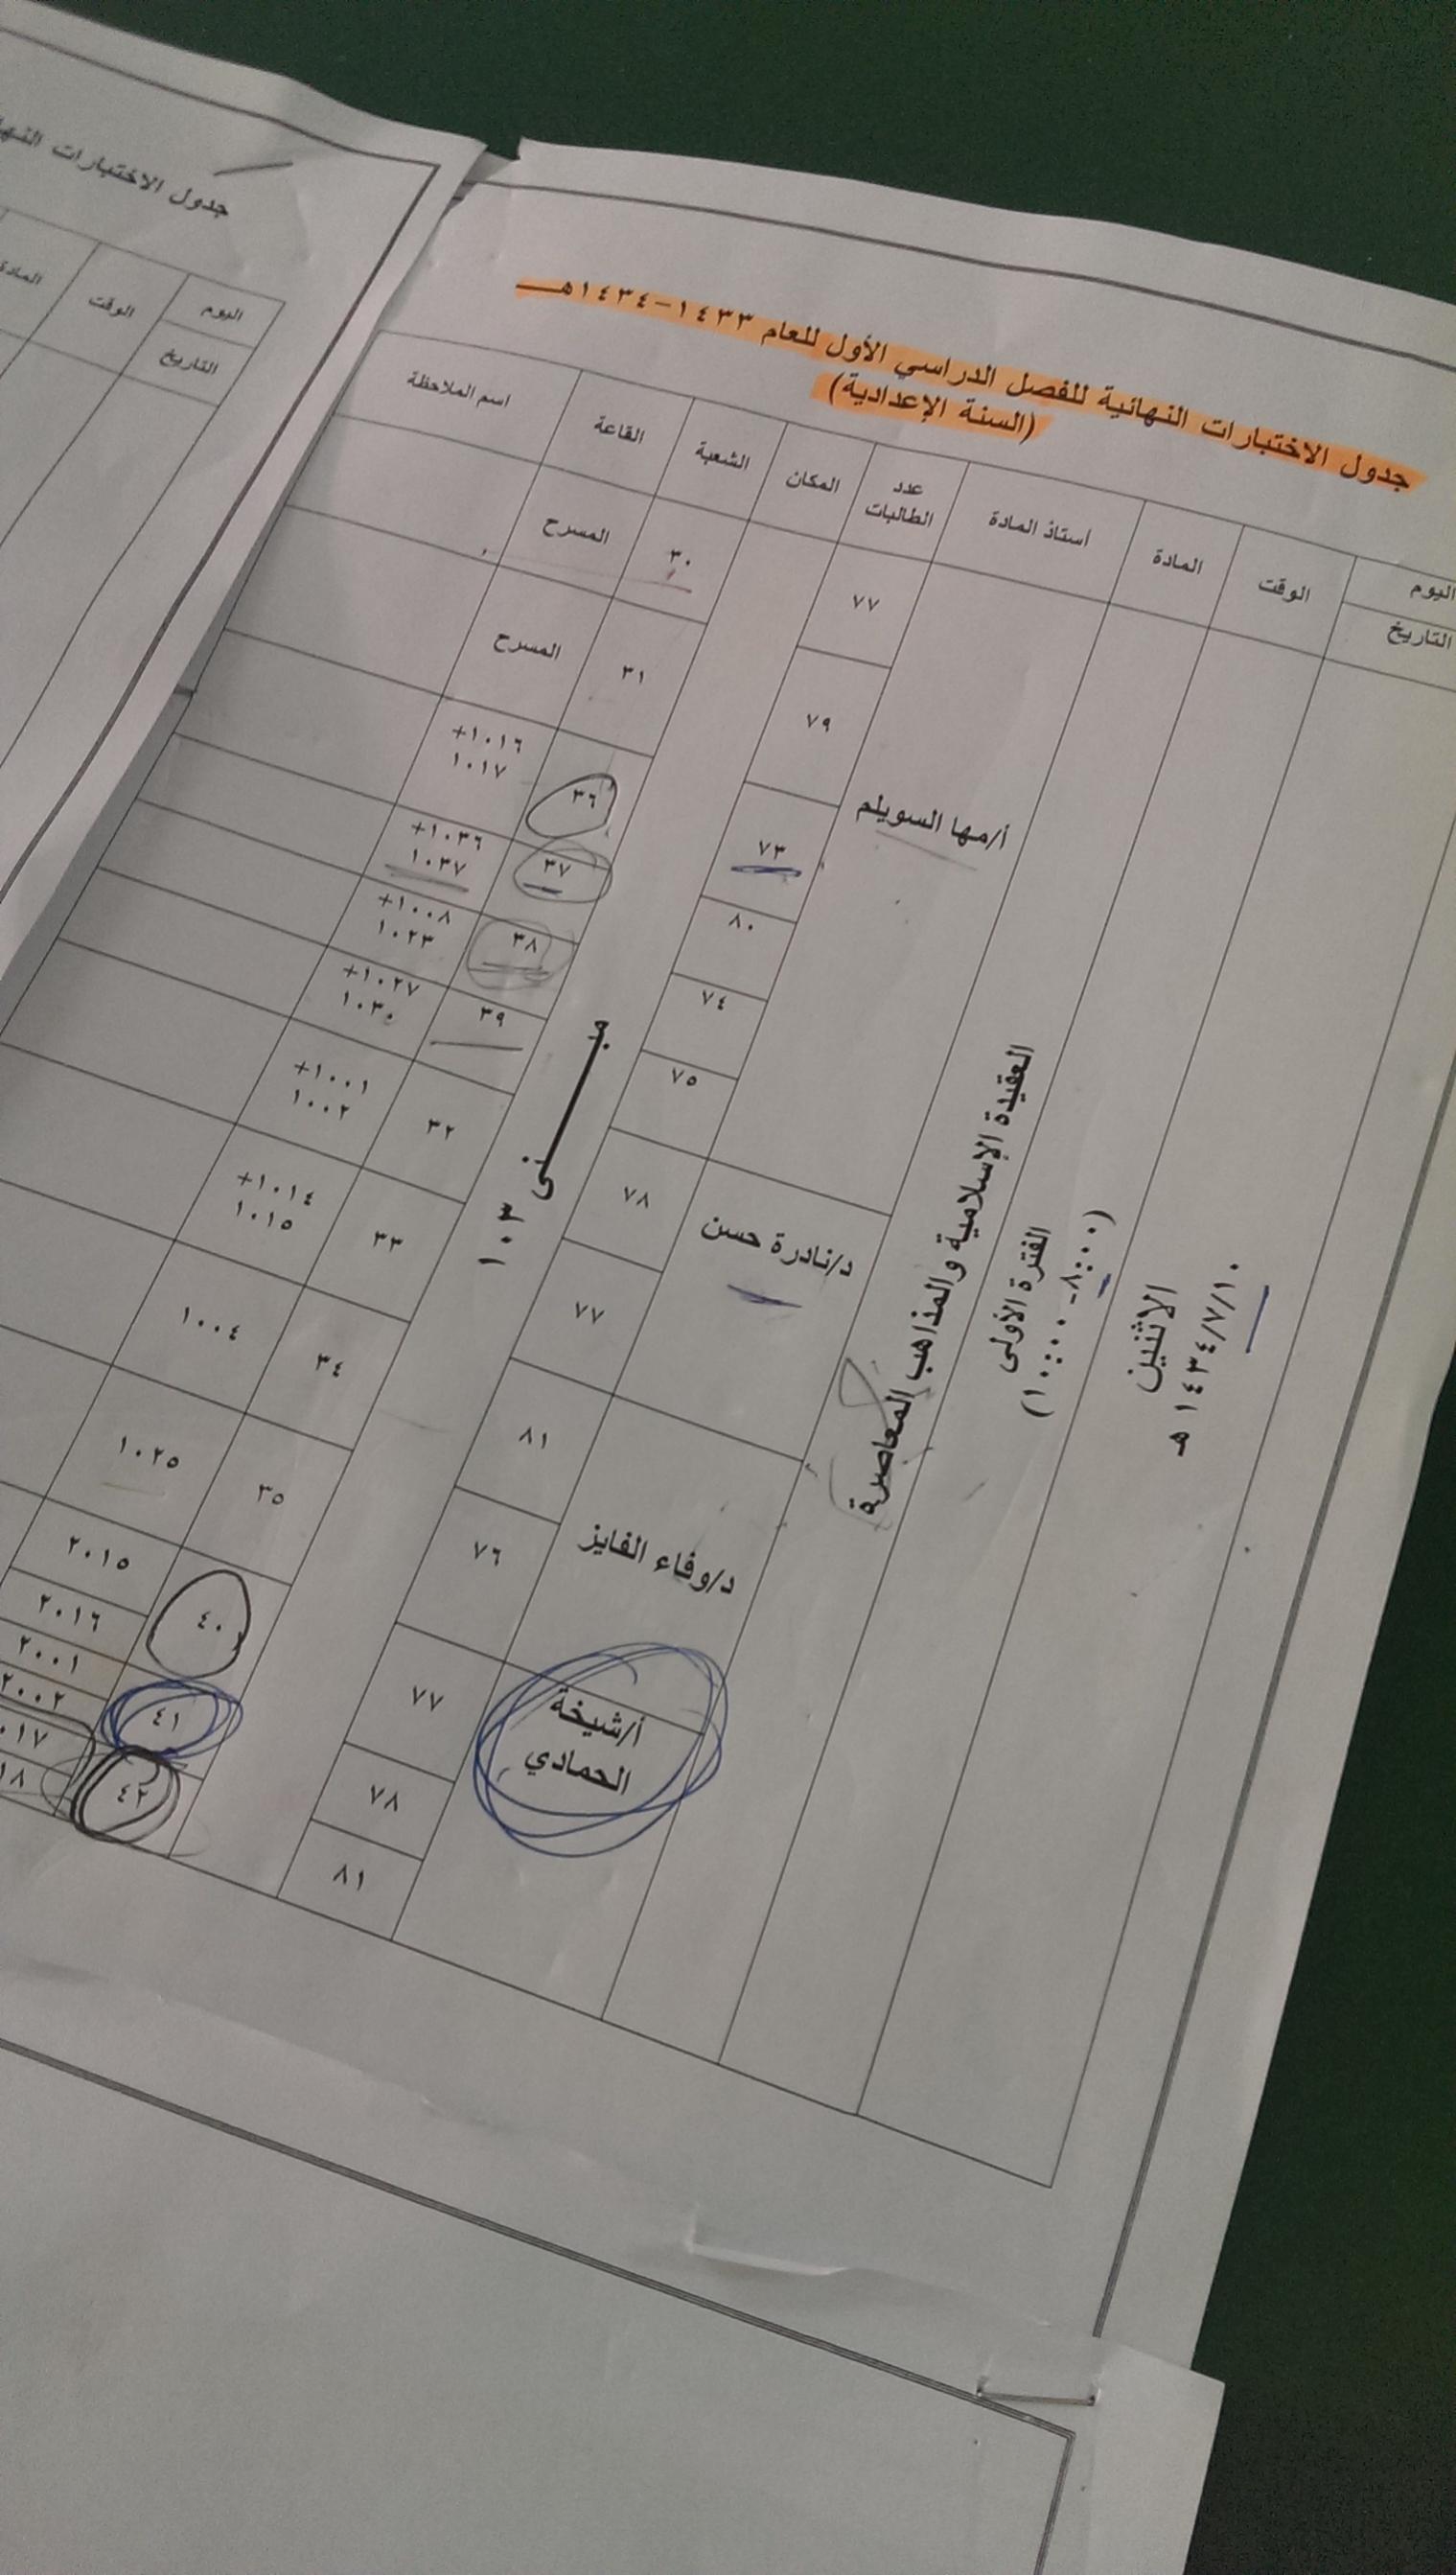 جدول الاختبارات النهائية للفصل الدراسي الأول للعام ١٤٣٣-١٤٣٤هـ
(السنة الإعدادية)
اليوم
التاريخ
الوقت
المادة
أستاذ المادة
عدد
الطالبات
المكان
الشعبة
القاعة
اسم الملاحظة
الاثنين
١٤٣٤/٧/١٠ هـ
الفترة الأولى
(٨:٠٠-١٠:٠٠)
العقيدة الإسلامية والمذاهب المعاصرة
أ/مها السويلم
د/نادرة حسن
د/وفاء الفايز
أ/شيخة
الحمادي
مبـــنى ١٠٣
٧٧ ٣٠ المسرح
٧٩ ٣١ المسرح
٧٣ ٣٦ ١٠١٦+
١٠١٧
٨٠ ٣٧ ١٠٣٦+
١٠٣٧
٧٤ ٣٨ ١٠٠٨+
١٠٢٣
٧٥ ٣٩ ١٠٢٧+
١٠٣٠
٧٨ ٣٢ ١٠٠١+
١٠٠٢
٧٧ ٣٣ ١٠١٤+
١٠١٥
٨١ ٣٤ ١٠٠٤
٧٦ ٣٥ ١٠٢٥
٧٧ ٤٠ ٢٠١٥
٢٠١٦
٧٨ ٤١ ٢٠٠١
٢٠٠٢
٨١ ٤٢
جدول الاختبارات
اليوم
التاريخ
الوقت
المادة